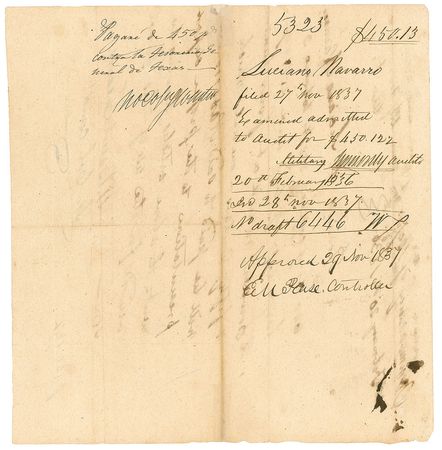 Pagaré de 450 p
contra la Tesoreria Je
neral de Texas
5323
$450.13
Luciano Navarro
filed 27th Nov 1837
Examined admitted
to Audit for $450.12½
Military
20th February 1836
28th nov 1837
No draft 6446
Approved 29 Nov 1837
E M Pease, Controller